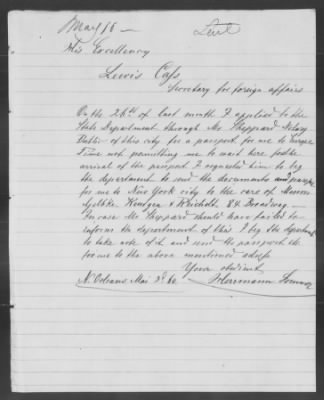 May 18 —
Sent
His Excellency
Lewis Cass
Secretary for foreign affairs
On the 26th of last month I applied to the
State Department through Mr. Sheppard Notary
Public of this city for a passport for me to Europe
Time not permitting me to wait here for the
arrival of the passport I requested him to beg
the department to send the documents and passport
for me to New York city to the care of Messrs
& Reichelt. 84 Broadway.
In case Mr Sheppard should have failed to
inform the department of this I beg the department
to take note of it and send the passport etc
for me to the above mentioned adress
Your obedient
N. Orleans Mai 3d 60. Herrmann